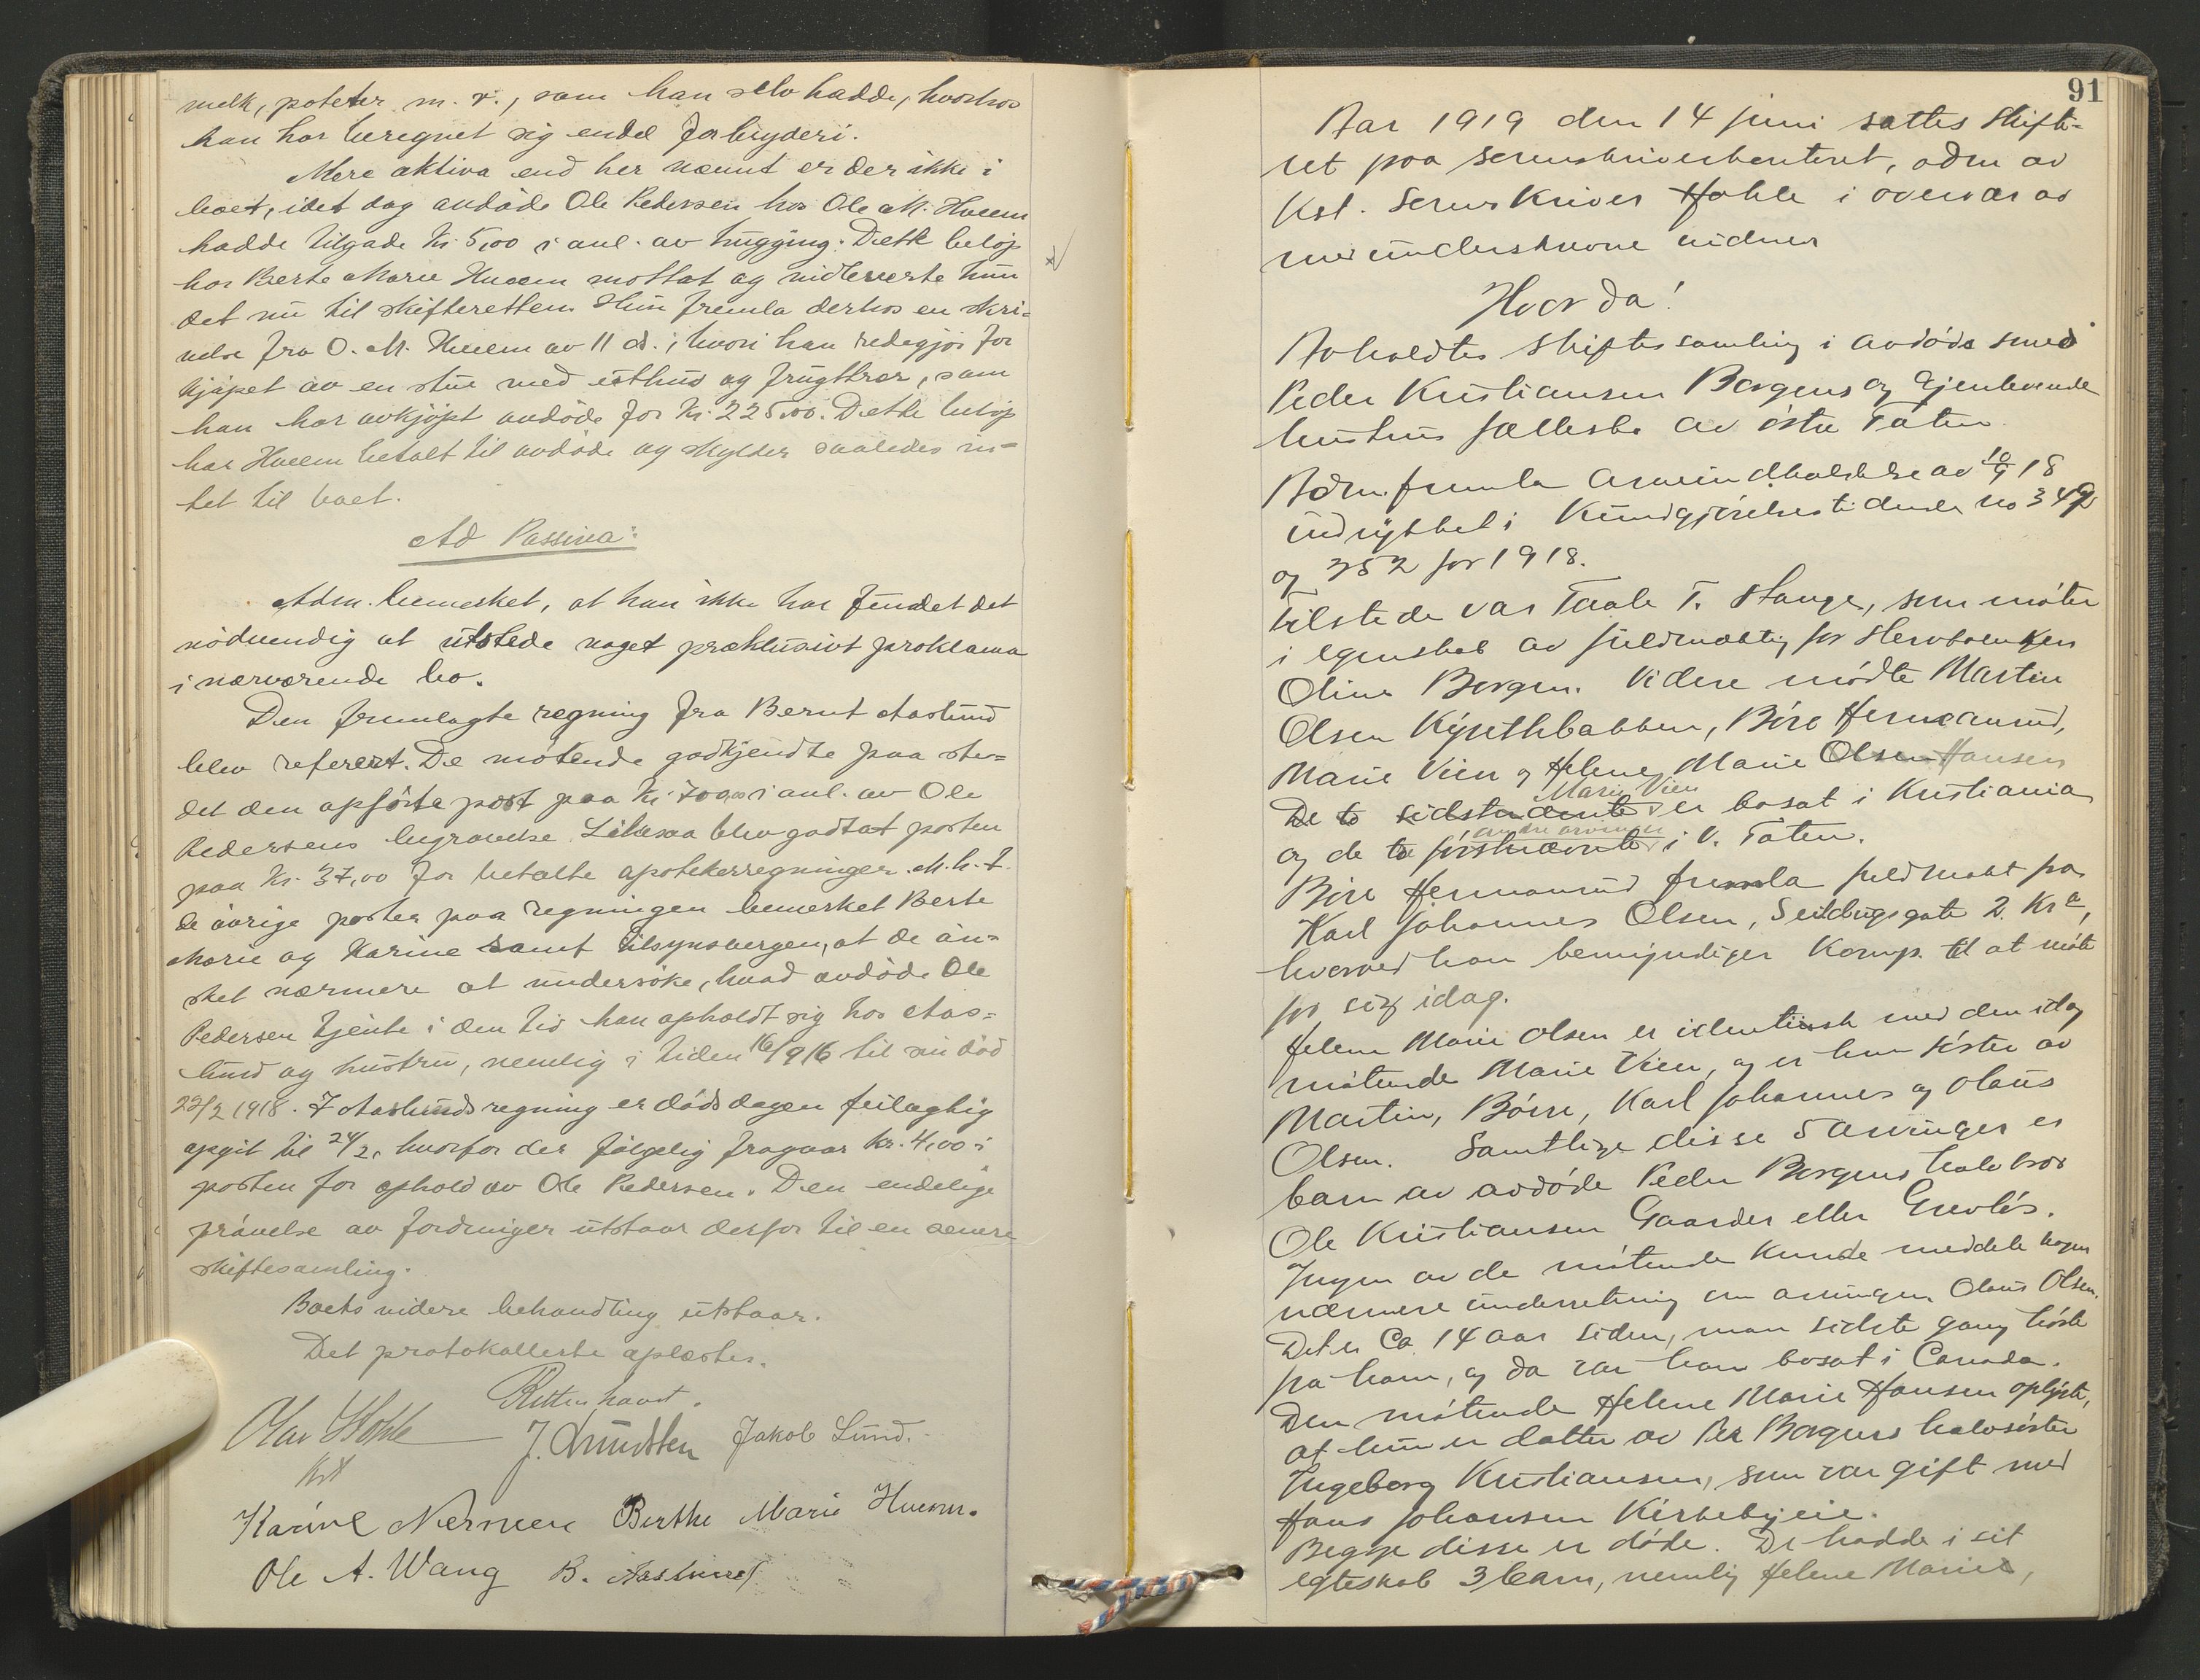 melk, poteter m. v., som han selv hadde, hvorhos
han har beregnet sig endel for bryderi.
Mere aktiva end her nævnt er der ikke i
boet, idet dog avdøde Ole Pedersen hos Ole M. Hveem
hadde tilgode kr. 5,00 i anl. av hugging. Dette beløp
har Berte Marie Hveem mottat og indleverte hun
det nu til skifteretten. Hun fremla derhos en skri-
velse fra O. M. Hveem av 11 ds., hvori han redegjør for
kjøpet av en stue med uthus og frugttrær, som
han har avkjøpt avdøde for kr. 225,00. Dette beløp
har Hveem betalt til avdøde og skylder saaledes in-
tet til boet.
Ad Passiva:
Adm. bemerket, at han ikke har fundet det
nødvendig at utstede noget præklusivt proklama
i nærværende bo.
Den fremlagte regning fra Bernt Aaslund
blev referert. De møtende godkjendte paa ste-
det den opførte post paa kr. 700,00 i anl. av Ole
Pedersens begravelse. Likesaa blev godtat posten
paa kr. 37,00 for betalte apotekerregninger. M. h. t.
de øvrige poster paa regningen bemerket Berte
Marie og Karine samt tilsynsvergen, at de øn-
sket nærmere at undersøke, hvad avdøde Ole
Pedersen tjente i den tid han opholdt sig hos Aas-
lund og hustru, nemlig i tiden 16/9 16 til sin død
22/2 1918. I Aaslunds regning er dødsdagen feilagtig
opgit til 24/2, hvorfor der følgelig fragaar kr. 4,00 i
posten for ophold av Ole Pedersen. Den endelige
prøvelse av fordringer utstaar derfor til en senere
skiftesamling.
Boets videre behandling utstaar.
Det protokollerte oplæstes.
Retten hævet.
Olav Hohle J. Amundsen Jakob Lund.
Kst
Karine Nermeen Berthe Marie Hveem.
Ole A. Wang B. Aaslund
91
Aar 1919 den 14 juni sattes skifte-
ret paa sorenskriverkontoret, adm av
Kst. Sorenskriver Hohle i overvær av
medunderskrevne vidner
Hvorda!
Avholdtes skiftesamling i avdøde smed
Peder Kristiansen Borgens og gjenlevende
hustrus fællesbo av østre Toten.
Adm. fremla arveindkaldelse av 10/9 18
indrykket i Kundgjørelsestidende no 349
og 352 for 1918.
Tilstede var Taale T. Stange, som møter
i egenskab av fuldmægtig for Hervorenken
Oline Borgen. Videre mødte Martin
Olsen Kyseth­bakken, Børe Hermanrud,
Marie Vien og Helene Marie Olsen Hansen
De to sidstnævnte Marie Vien er bosat i Kristiania
og de to førstnævnte andre arvinger i V. Toten.
Børe Hermanrud fremla fuldmakt fra
Karl Johannes Olsen, Seildugsgate 2. Kra,
hvorved han bemyndiger Komp. til at møte
for sig idag.
Helene Marie Olsen er identisk med den idag
møtende Marie Vien, og er hun søster av
Martin, Børre, Karl Johannes og Olaus
Olsen. Samtlige disse 5 arvinger er
barn av avdøde Peder Borgens halvbror
Ole Kristiansen Gaarder eller Grevløs.
Ingen av de møtende kunde meddele nogen
nærmere underretning om arvingen Olaus Olsen.
Det er ca. 14 aar siden, man sidste gang hørte
fra ham, og da var han bosat i Canada.
Den møtende Helene Marie Hansen oplyste,
at hun er datter av Per Borgens halvsøster
Ingeborg Kristiansen, som var gift med
Hans Johansen Kirkebyeie.
Begge disse er døde. De hadde i sit
egteskab 3 barn, nemlig Helene Marie,